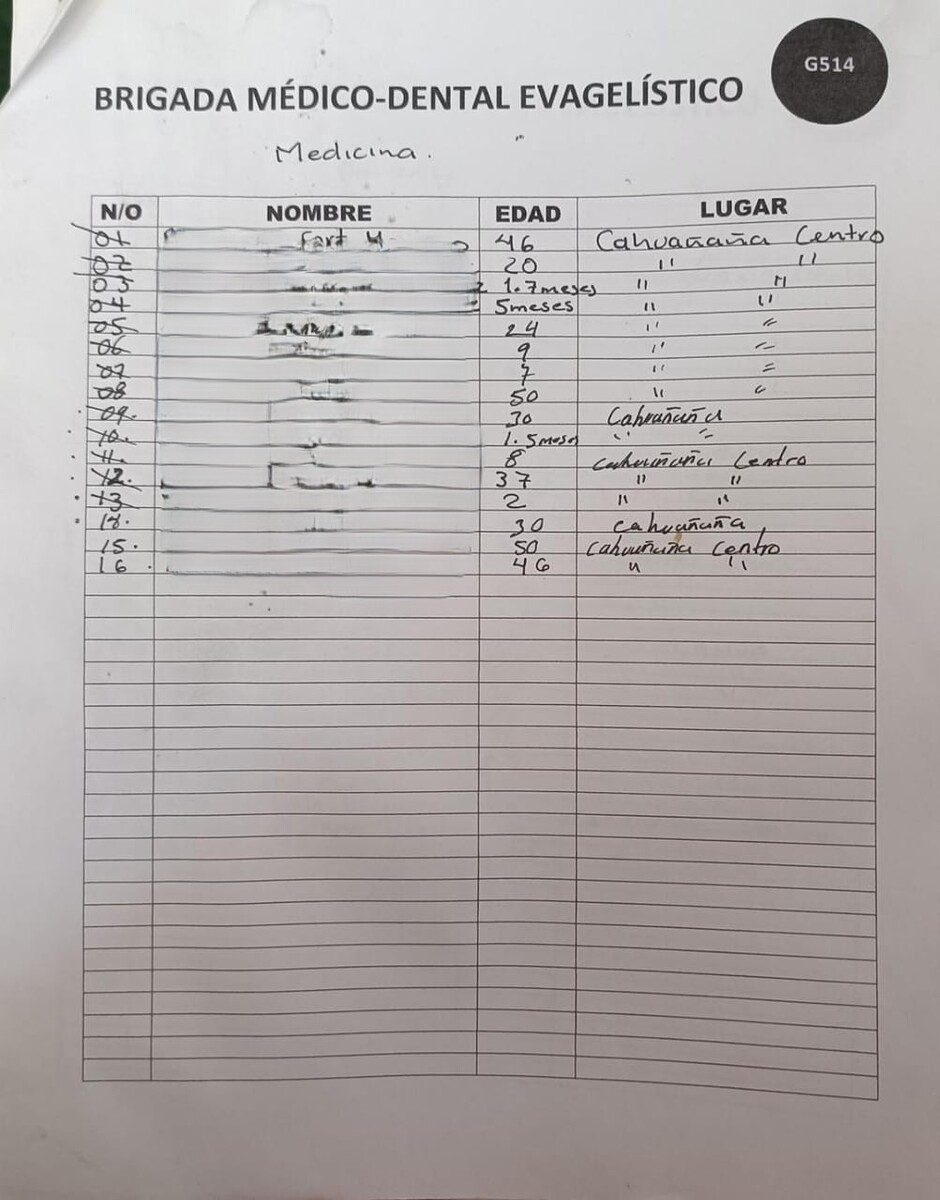 G514
BRIGADA MÉDICO-DENTAL EVAGELÍSTICO
Medicina.
N/O NOMBRE EDAD LUGAR
01 46 Cahuañaña Centro
02 20 " "
03 1.7 meses " "
04 5 meses " "
05 24 " "
06 9 " "
07 7 " "
08 50 " "
09. 30 Cahuañaña
10. 1.5 meses " "
11. 8 Cahuañaña Centro
12. 37 " "
13 2 " "
18. 30 Cahuañaña
15. 50 Cahuañaña Centro
16 46 " "